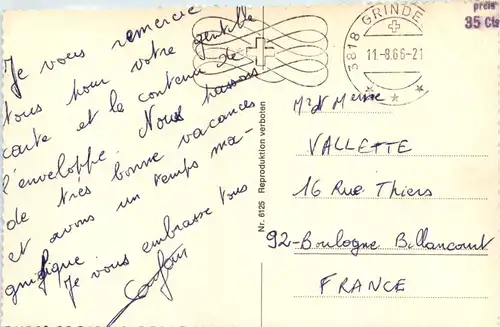 Je vous remercie
tous pour votre gentille
carte et le contenu de
l'enveloppe. Nous passons
de très bonne vacances
et avons un temps ma-
gnifique
Je vous embrasse tous
Nr. 6125 Reproduktion verboten
3818 GRINDE
11.-8.66-21
preis
35 Cts
VALLETTE
16 Rue Thiers
92-Boulogne Billancourt
FRANCE